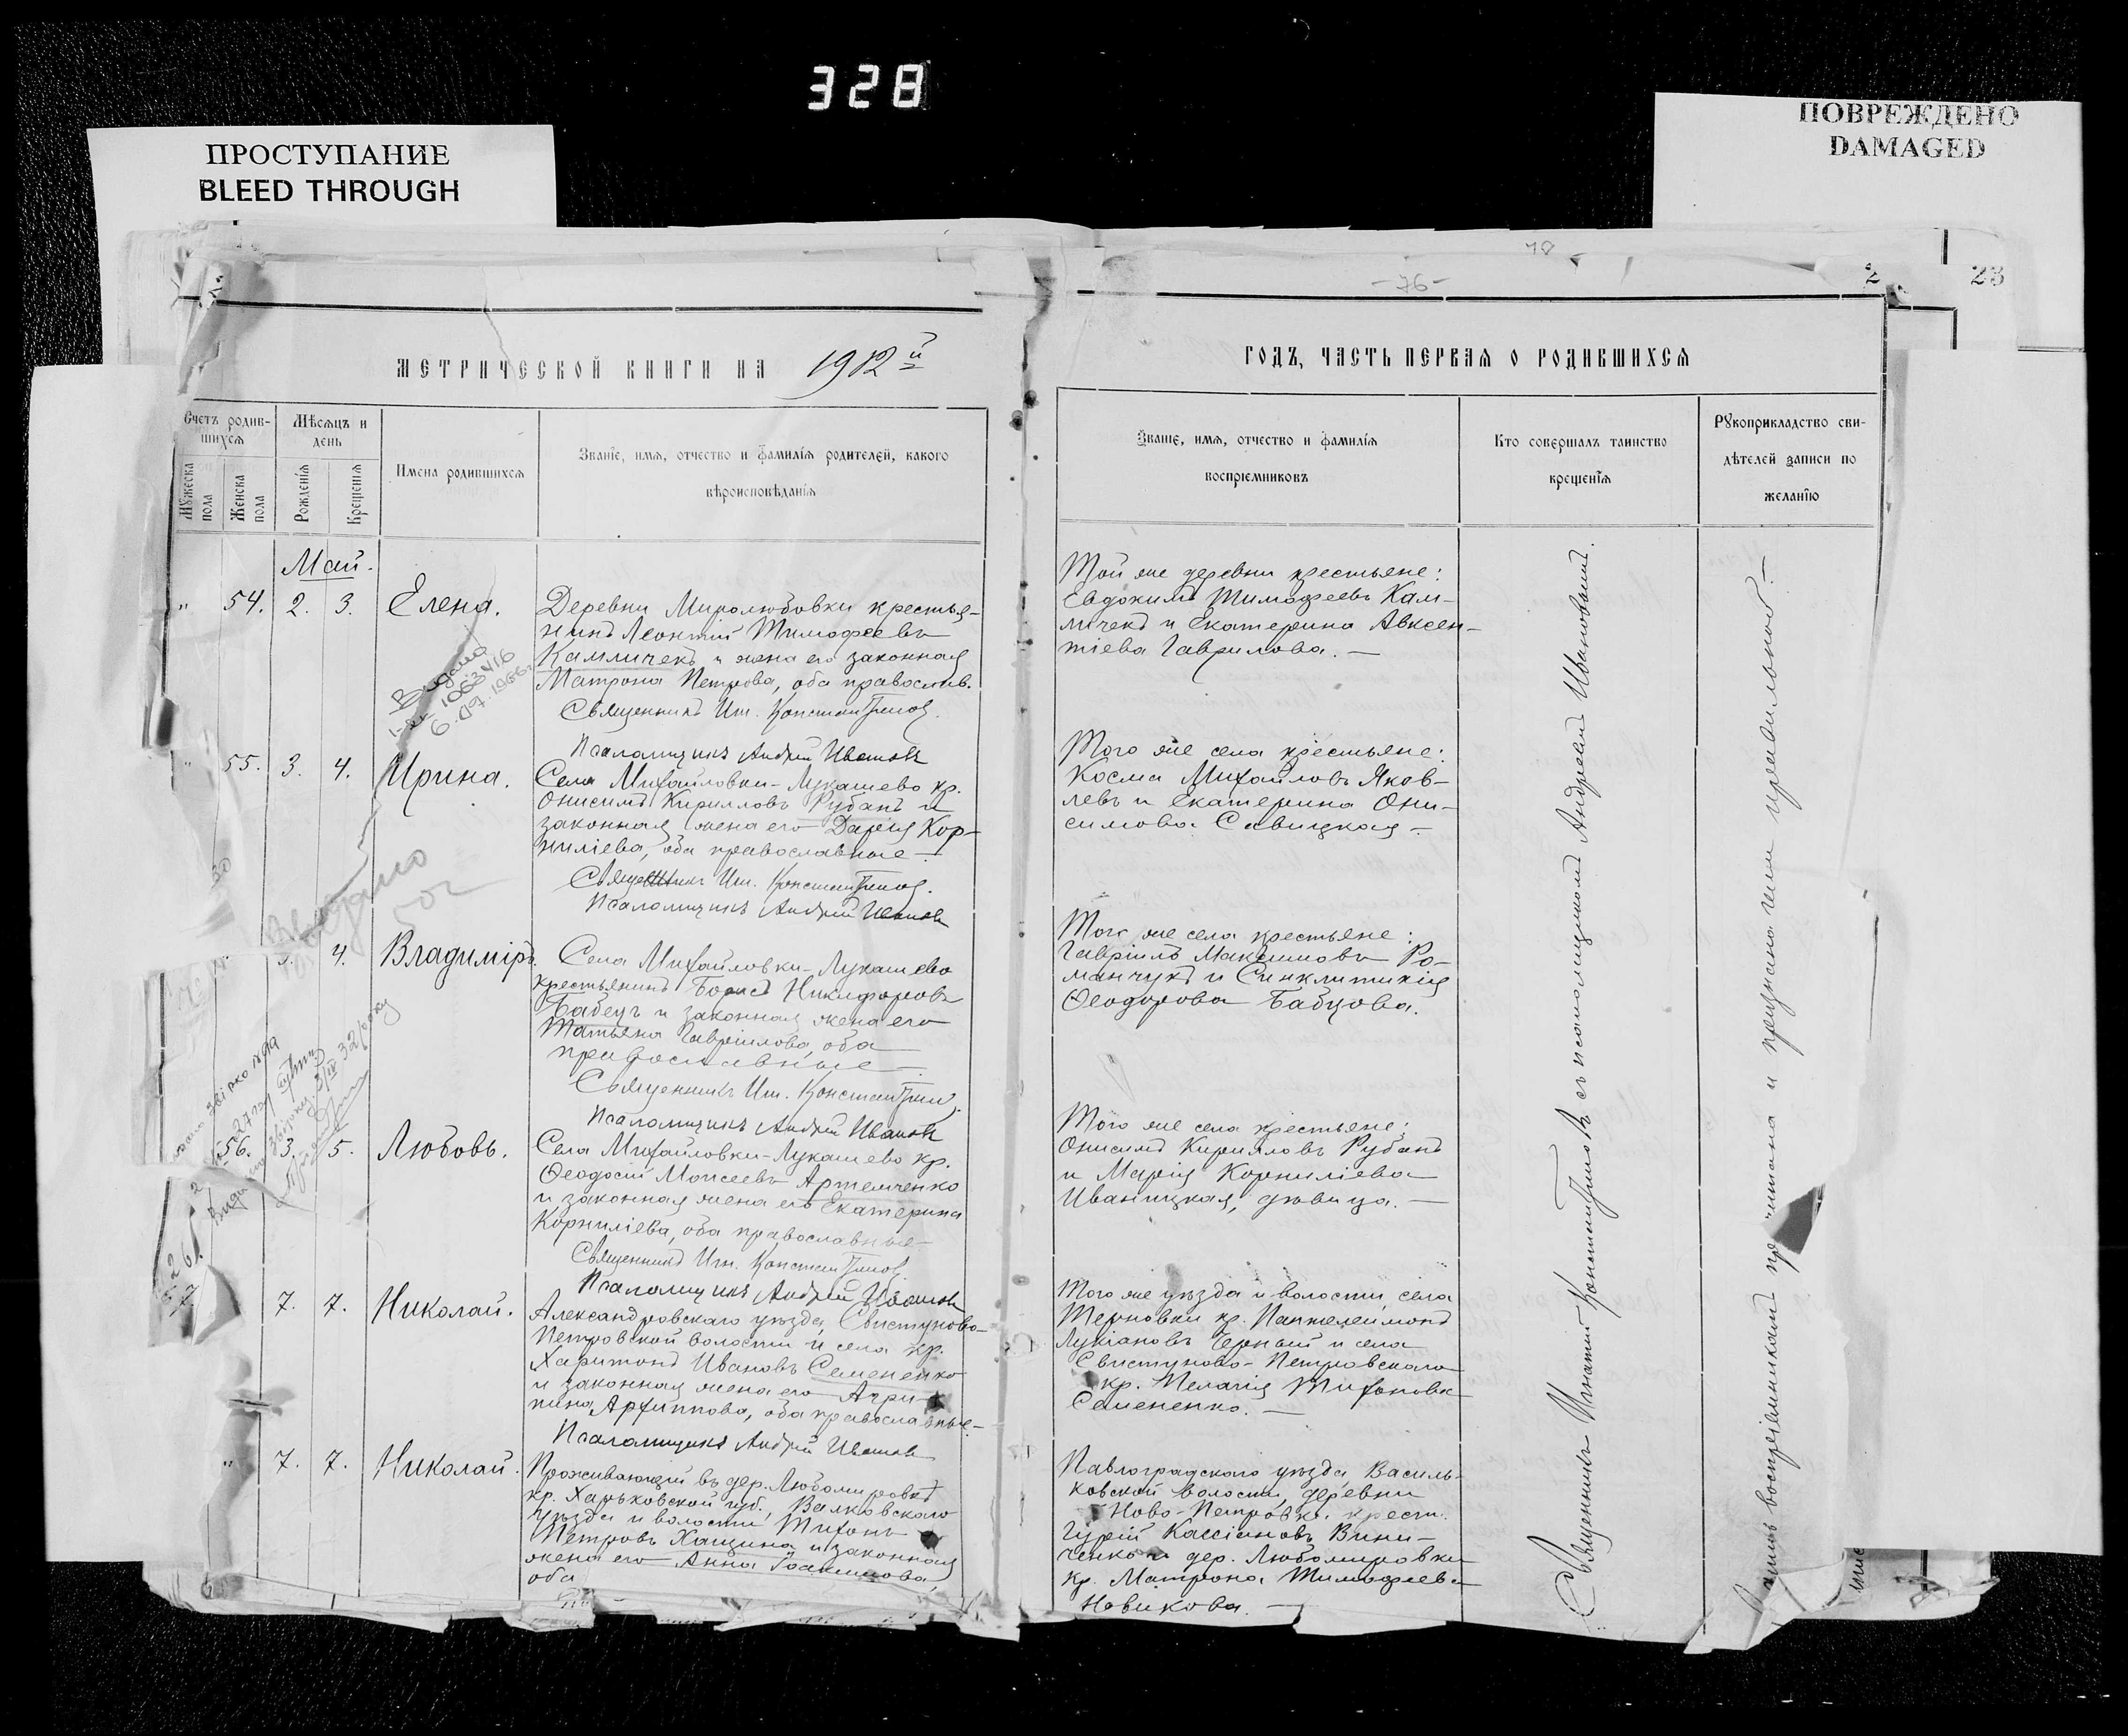 328
ПРОСТУПАНИЕ
BLEED THROUGH
ПОВРЕЖДЕНО
DAMAGED
78
-76-
2
23
МЕТРИЧЕСКОЙ КНИГИ НА 1912й
ГОДЪ, ЧАСТЬ ПЕРВАЯ О РОДИВШИХСЯ
Счетъ родив-
шихся
Мѣсяцъ и
день
Мужеска
пола
Женска
пола
Рожденія
Крещенія
Имена родившихся
Званіе, имя, отчество и фамилія родителей, какого
вѣроисповѣданія
Званіе, имя, отчество и фамилія
воспріемниковъ
Кто совершалъ таинство
крещенія
Рукоприкладство сви-
дѣтелей записи по
желанію
Май.
" 54. 2. 3. Елена.
Деревни Миролюбовки крестья-
нинъ Леонтій Тимофеевъ
Камличекъ и жена его законная
Матрона Петрова, оба православ.
Священникъ Иг. Константинов.
Псаломщикъ Андрей Иванов
Той же деревни крестьяне:
Евдокимъ Тимофеевъ Кам-
личекъ и Екатерина Авксен-
тіева Гаврилова. —
Видано
1063416
55. 3. 4. Ирина.
Села Михайловки-Лукашево кр.
Онисимъ Кирилловъ Рубанъ и
законная жена его Дарія Кор-
ниліева, оба православные —
Священникъ Иг. Константинов.
Псаломщикъ Андрей Иванов
Того же села крестьяне:
Косма Михайловъ Яков-
левъ и Екатерина Они-
симова Савицкая —
Видано
502
4. Владиміръ.
Села Михайловки-Лукашево
крестьянинъ Борисъ Никифоровъ
Бабецъ и законная жена его
Татьяна Гавріилова, оба
православные —
Священникъ Иг. Константинов.
Псаломщикъ Андрей Иванов
Того же села крестьяне:
Гавріилъ Максимовъ Ро-
манчукъ и Синклитикія
Ѳеодорова Бабцова.
56. 3. 5. Любовь.
Села Михайловки-Лукашево кр.
Ѳеодосій Моисеевъ Артемченко
и законная жена его Екатерина
Корниліева, оба православные —
Священникъ Игн. Константинов
Псаломщикъ Андрей Иванов
Того же села крестьяне:
Онисимъ Кирилловъ Рубанъ
и Марія Корниліева
Иваницкая, дѣвица. —
7. 7. Николай.
Александровскаго уѣзда, Свистуново-
Петровской волости и села кр.
Харитонъ Ивановъ Семененко
и законная жена его Агри-
пина Архиппова, оба православные —
Псаломщикъ Андрей Иванов
Того же уѣзда и волости, села
Терновки кр. Пантелеимонъ
Лукіановъ Черный и села
Свистуново-Петровскаго
кр. Пелагія Тихонова
Семененко. —
" 7. 7. Николай.
Проживающій въ дер. Любомировкѣ
кр. Харьковской губ., Валковскаго
уѣзда и волости Тихонъ
Петровъ Хащина и законная
жена его Анна Іоакимова,
оба
Павлоградскаго уѣзда, Василь-
ковской волости, деревни
Ново-Петровки, крест.
Гурій Кассіановъ Вини-
ченко и дер. Любомировки
кр. Матрона Тимофеева
Новикова. —
Священникъ Игнатій Константиновъ съ псаломщикомъ Андреемъ Ивановымъ.
воспріемникамъ прочитана и признана ими правильной. —